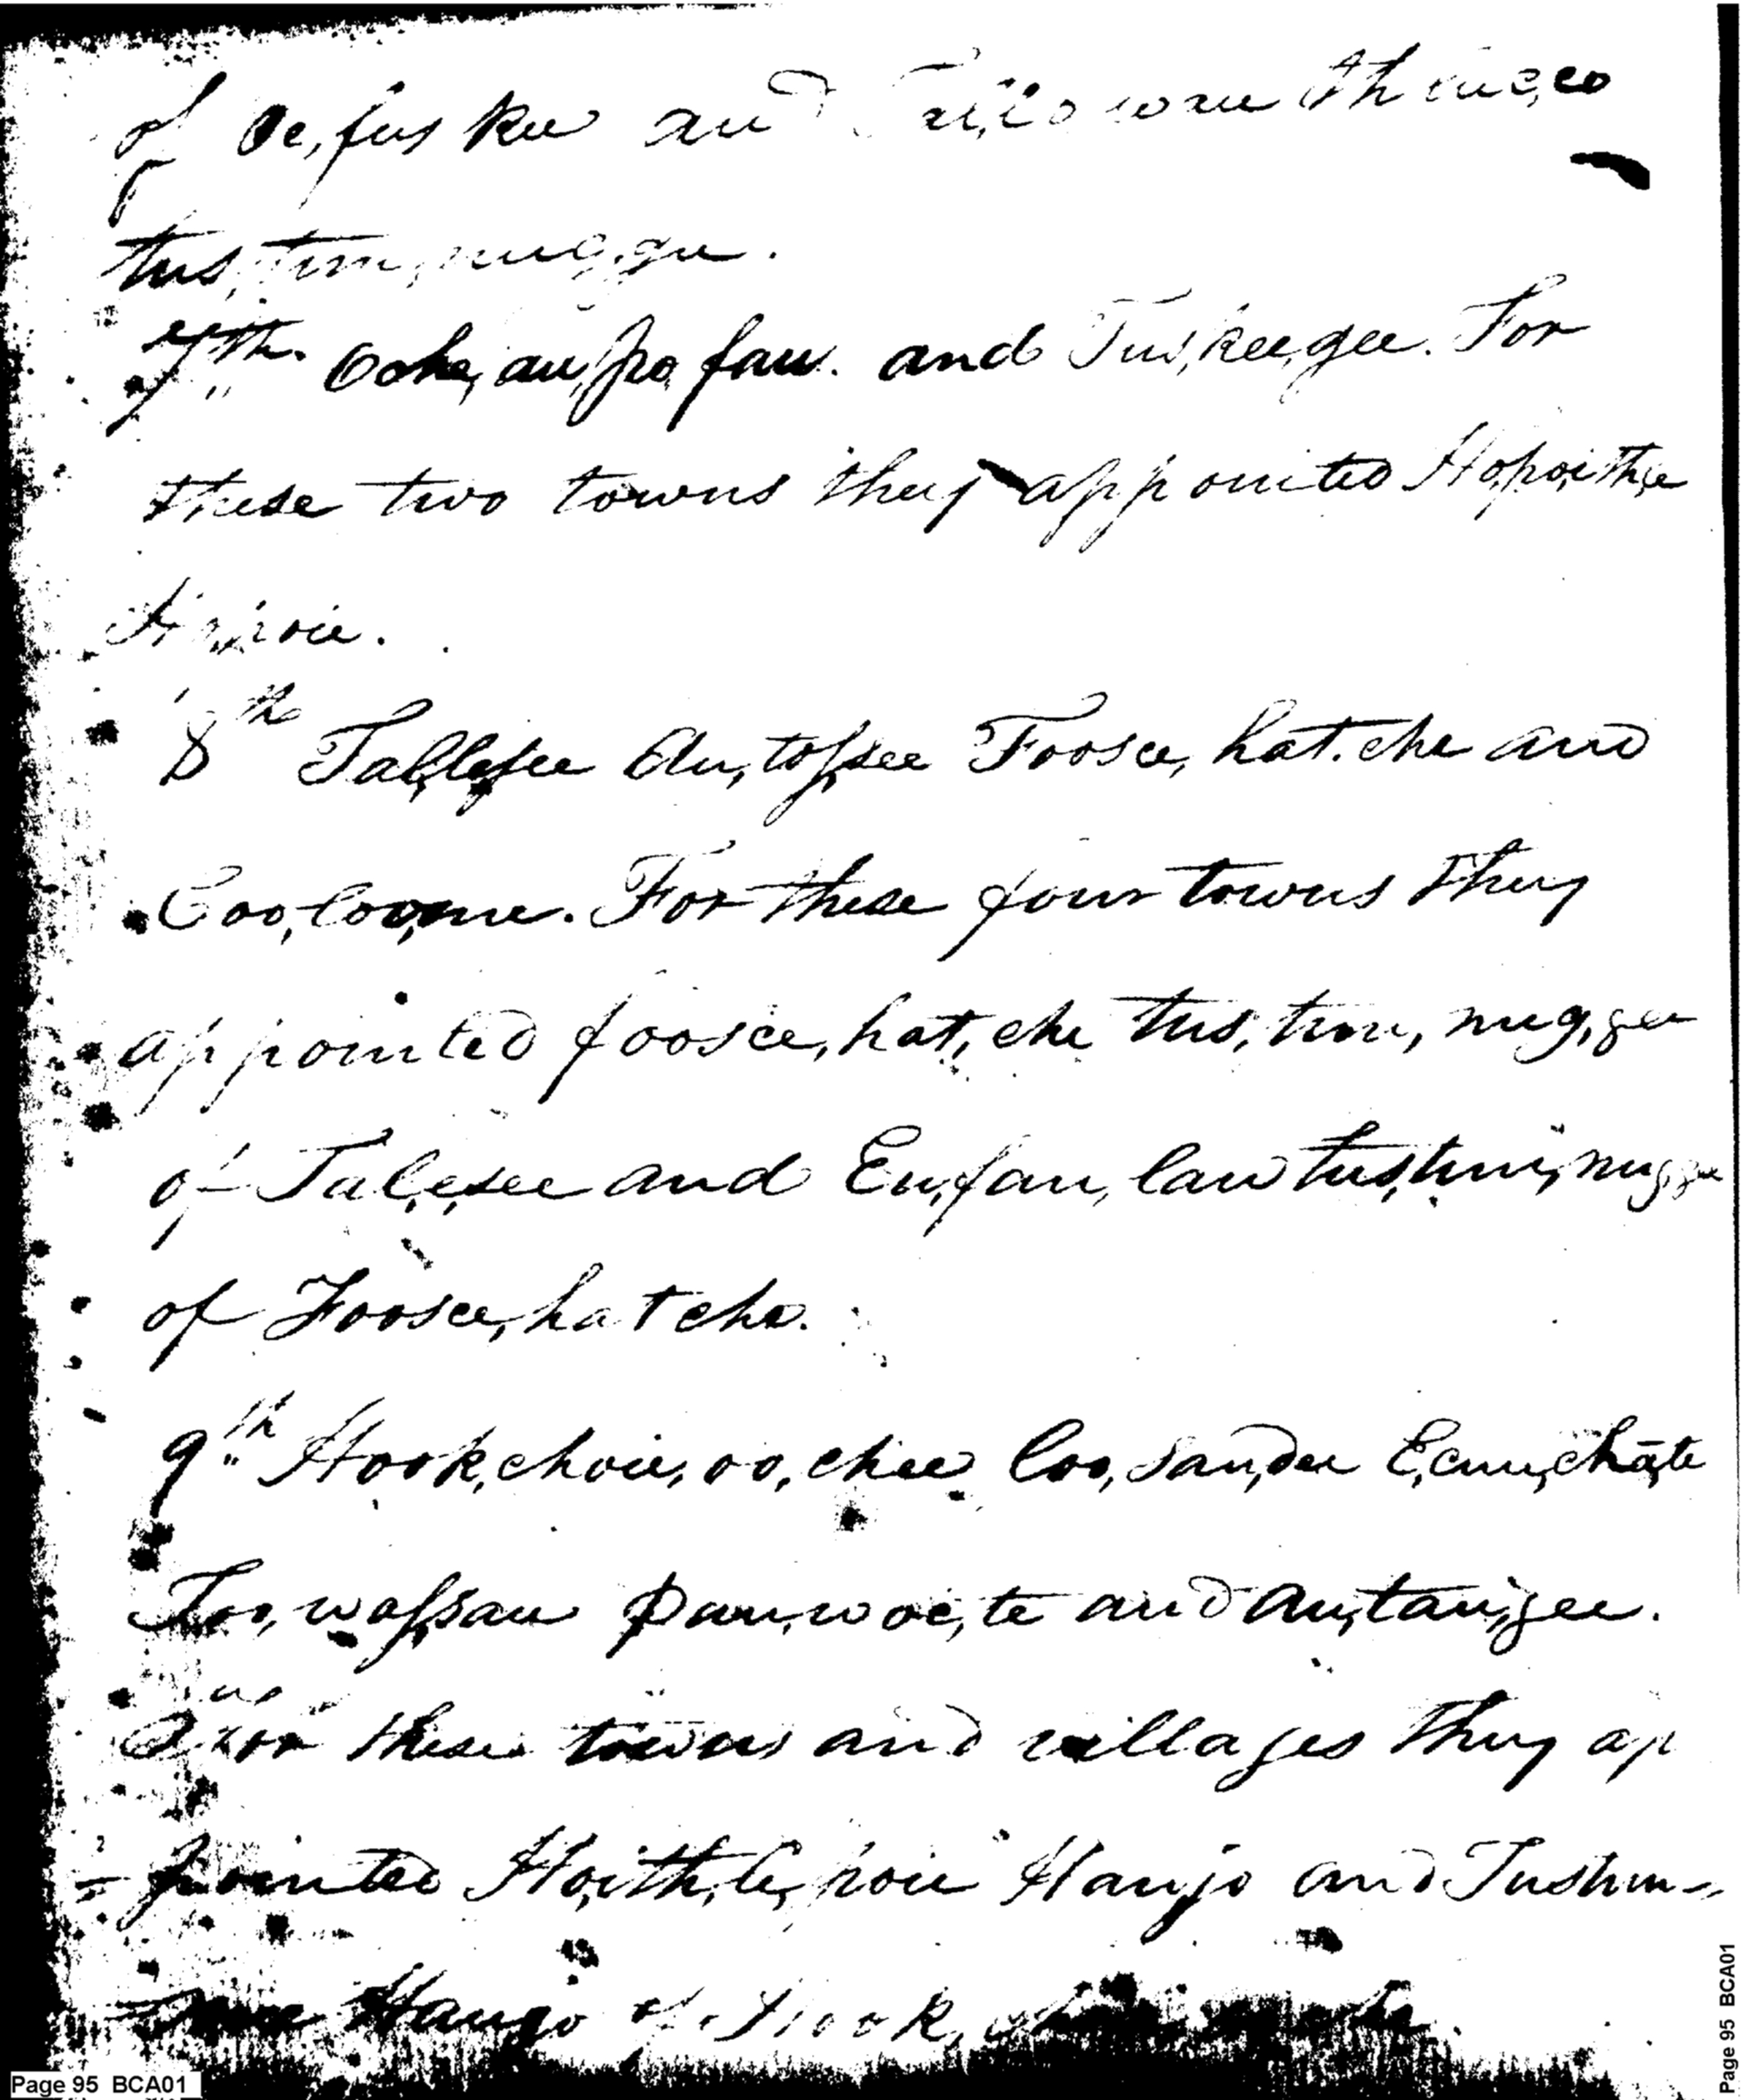 of Oc,fus kee and thluc,co
tus,tun,nug,gee.
7th. Oche,au,po,fau. and Tus,kee,gee. For
these two towns they appointed Ho,poi,thle
Ho,poie.
8th Tal,le,see Au,tos,see Foosce,hat.che and
Coo,loo,me. For these four towns they
appointed foosce,hat,che tus,tun,nug,gee
of Tal,e,see and Eu,fau,lau tus,tun,nug,gee
of Foosce,hatche.
9th Hook,choie,oo,chee Coo,sau,dee E,cun,châ,te
Too,was,sau Pau,woc,te and Au,tau,gee.
For these towns and villages they ap
- pointed Ho,ith,le,poie Haujo and Tustun-
Haujo of Hook,
Page 95 BCA01
Page 95 BCA01